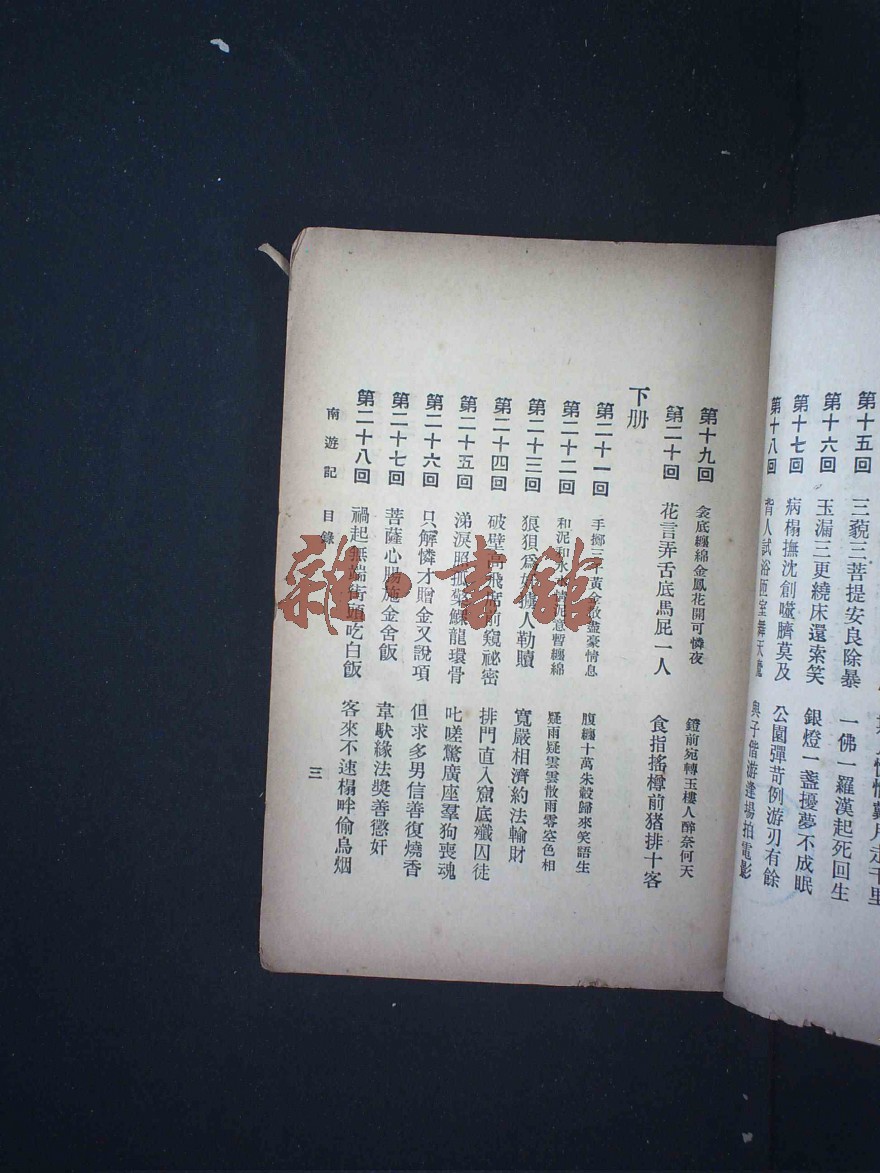 第十五回 三藐三菩提安良除暴 一佛一羅漢起死回生
第十六回 玉漏三更繞床還索笑 銀燈一盞擾夢不成眠
第十七回 病榻撫沈創噬臍莫及 公園彈苛例游刃有餘
第十八回 背人試浴匝室舞天魔 與子偕游逢場拍電影
第十九回 衾底纏綿金鳳花開可憐夜 鐙前宛轉玉樓人醉奈何天
第二十回 花言弄舌底馬屁一人 食指搖樽前猪排十客
下册
第二十一回 手擲三 黃金散盡豪情息 腹纏十萬朱轂歸來笑語生
第二十二回 和泥和水水情泥意暫纏綿 疑雨疑雲雲散雨零空色相
第二十三回 狼狽爲 擄人勒贖 寬嚴相濟約法輸財
第二十四回 破壁高飛席前窺祕密 排門直入窟底殲囚徒
第二十五回 涕淚照孤 鰥龍環骨 叱嗟驚廣座羣狗喪魂
第二十六回 只解憐才贈金又說項 但求多男信善復燒香
第二十七回 菩薩心腸施金舍飯 韋馱緣法獎善懲奸
第二十八回 禍起無端街頭吃白飯 客來不速榻畔偷烏烟
南遊記 目錄 三
雜·書館